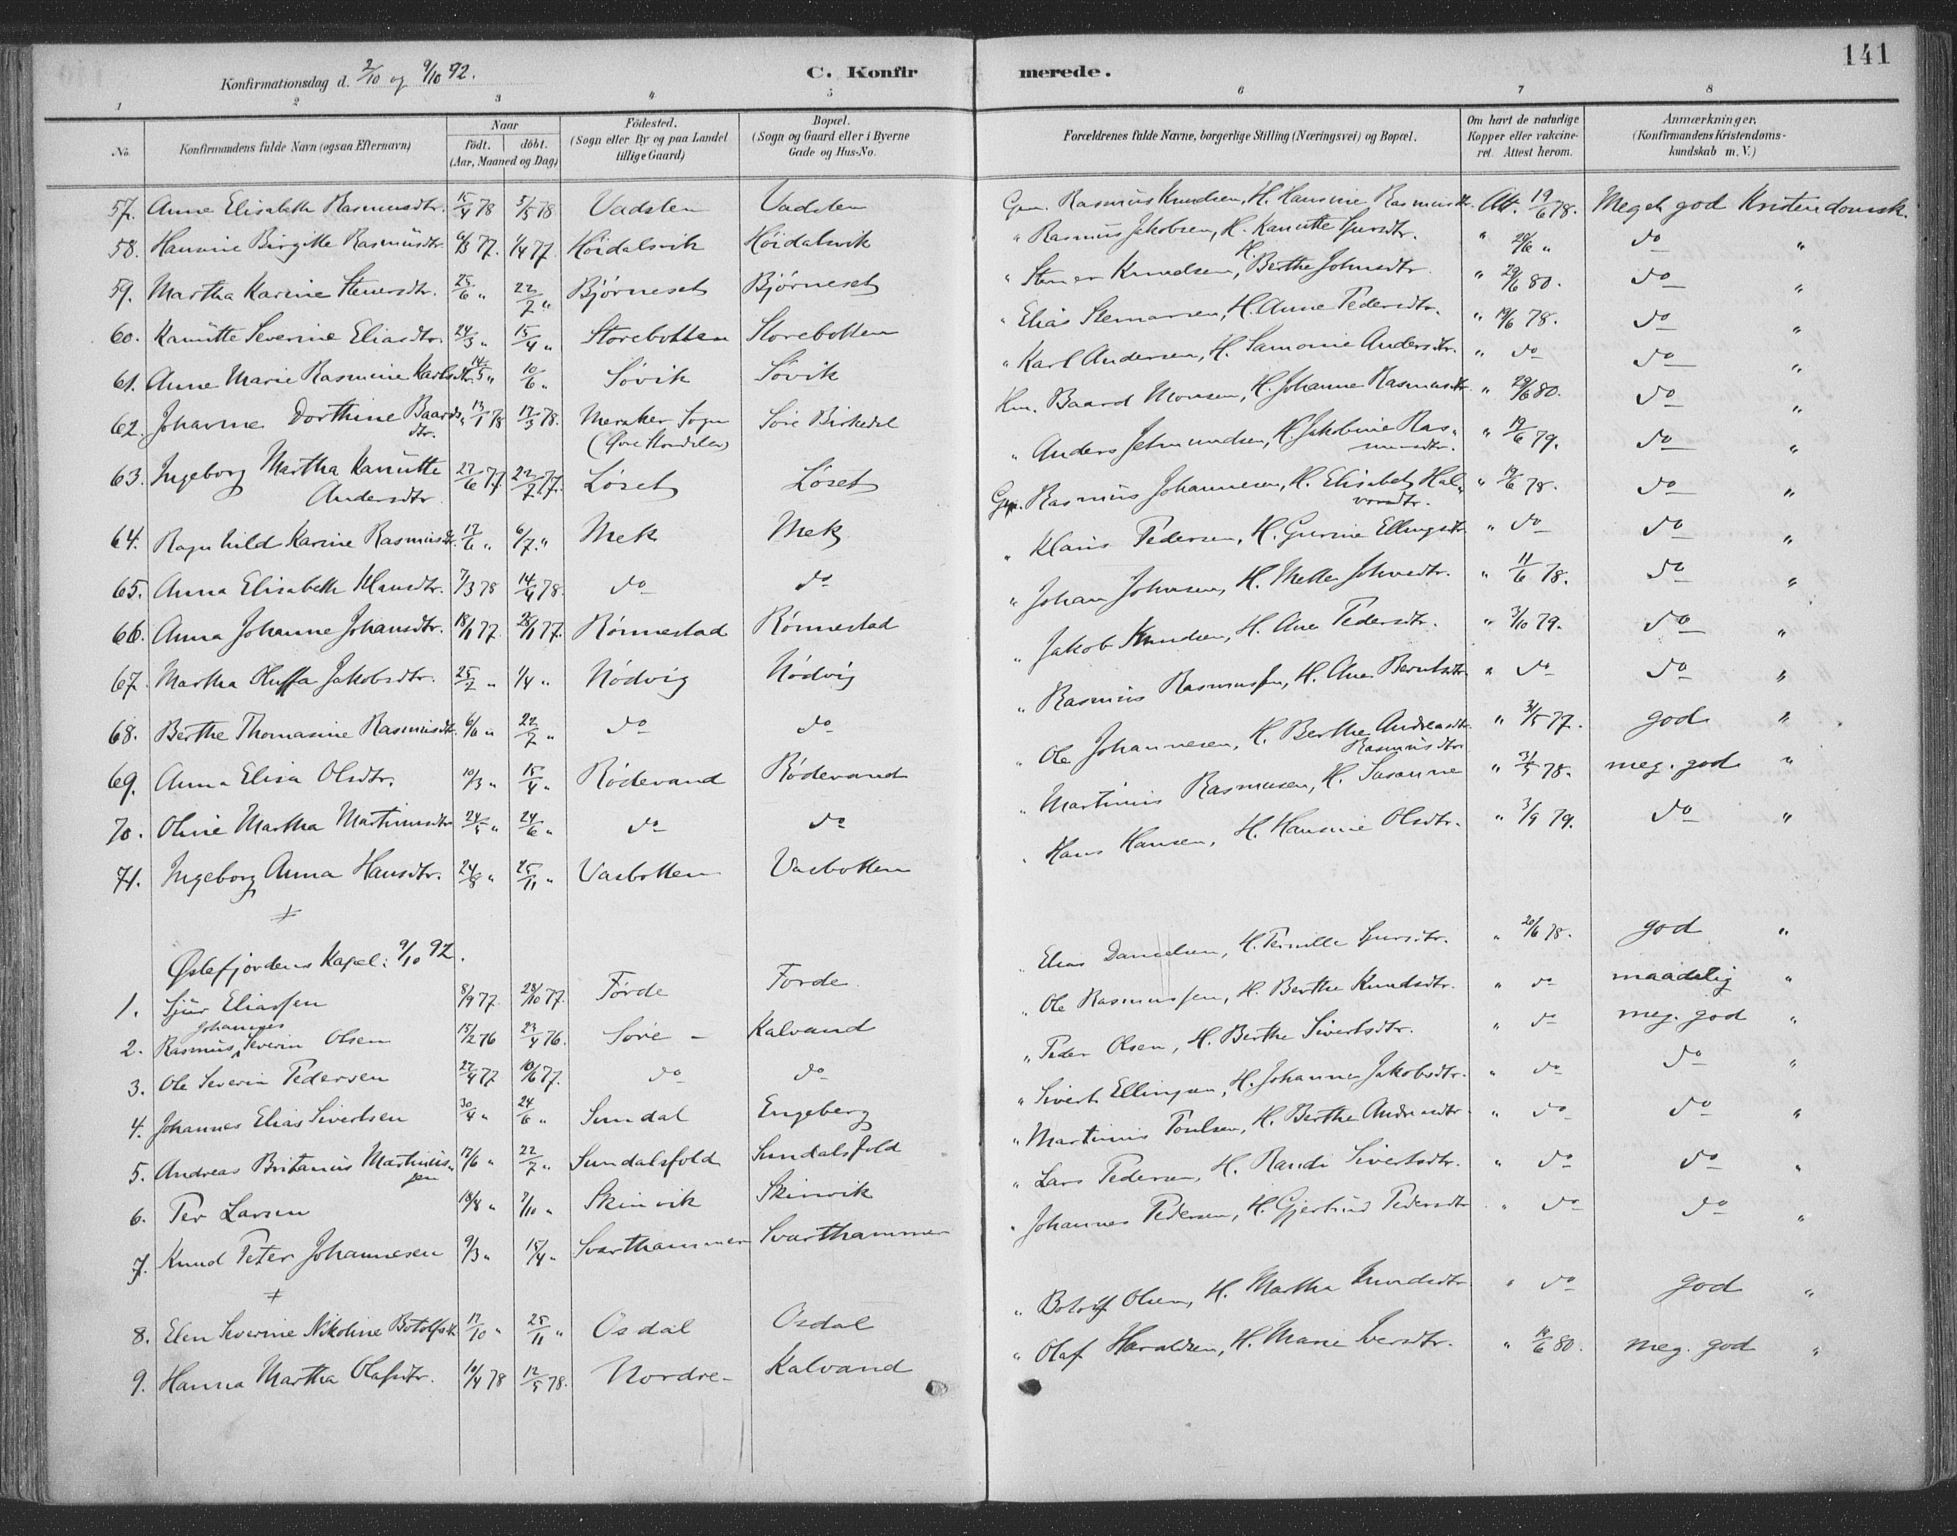 141
Konfirmationsdag d. 2/10 og 9/10 92. C. Konfirmerede.
1 2 3 4 5 6 7 8
No. Konfirmandens fulde Navn (ogsaa Efternavn) Naar Födt. döbt. (Aar, Maaned og Dag) Födested. (Sogn eller By og paa Landet tillige Gaard) Bopæl. (Sogn og Gaard eller i Byerne Gade og Hus-No. Forældrenes fulde Navne, borgerlige Stilling (Næringsvei) og Bopæl. Om havt de naturlige Kopper eller vakcineret. Attest herom. Anmærkninger, (Konfirmandens Kristendomskundskab m. V.)
57. Anne Elisabeth Rasmusdtr. 15/4 78 5/5 78. Vadsten Vadsten Gm. Rasmus Knudsen, H. Hansine Rasmusdtr. Att. 19/6 78. Meget god Kristendomsk.
58. Hansine Birgitte Rasmusdtr. 6/3 77. 1/4 77. Höidalsvik Höidalsvik " Rasmus Jakobsen, H. Kanutte Sjursdtr. " 20/6 " do "
59. Martha Karine Stenersdtr. 25/6 " 22/7 " Bjørneset Bjørneset " Stener Knudsen, H. Berthe Johnsdtr. " 29/6 80. do "
60. Kanutte Severine Eliasdtr. 24/3 " 15/4 " Storebotten Storebotten " Elias Stenersen, H. Anne Pedersdtr. " 19/6 78. do "
61. Anne Marie Rasmine Karlsdtr. 14/5 " 10/6 " Søvik Søvik " Karl Andersen, H. Samonie Andersdtr. " do do "
62. Johanne Dorthine Baardsdtr. 13/1 78 17/3 78. Meraker Sogn Søre Birkedal Hm. Baard Monsen, H. Johanne Rasmusdtr. " 29/6 80. do "
63. Ingeborg Martha Kanutte Andersdtr 27/6 77. 22/7 77. Løset Løset " Anders Jetmundsen, H. Jakobine Rasmusdtr. " 19/6 79. do "
64. Ragnhild Karine Rasmusdtr. 17/6 " 6/7 " Mek Mek Gm. Rasmus Johannesen, H. Elisabet Halvorsdtr. " 19/6 78. do "
65. Anna Elisabeth Klausdtr. 7/3 78 14/4 78. do do " Klaus Pedersen, H. Gurine Ellingsdtr. " do do "
66. Anna Johanne Johansdtr. 18/1 77. 28/1 77. Rönnestad Rönnestad " Johan Johnsen, H. Mette Johnsdtr. " 11/6 78. do "
67. Martha Huffa Jakobsdtr. 25/2 " 1/4 " Nödvig Nödvig " Jakob Knudsen, H. Ane Pedersdtr. " 3/10 79. do "
68. Berthe Thomasine Rasmusdtr. 6/6 " 22/7 " do do " Rasmus Rasmussen, H. Ane Berntsdtr. " do do "
69. Anna Elisa Olsdtr. 10/3 " 15/4 " Rödevand Rödevand " Ole Johannesen, H. Berthe Andreasdtr. " 31/5 77. god "
70. Oline Martha Martinusdtr 24/5 " 24/6 " do do " Martinus Rasmusen, H. Susanne Rasmusdtr. " 31/5 78. meg. god "
71. Ingeborg Anna Hansdtr. 24/8 " 25/11 " Vasbotten Vasbotten " Hans Hansen, H. Hansine Olsdtr. " 3/9 79. do "
Østefjordens Kapel: 9/10 92.
1. Sjur Eliassen 8/9 77. 28/10 77. Førde Førde " Elias Danielsen, H. Pernille Sjursdtr. " 20/6 78. god "
2. Rasmus Johannes Severin Olsen 15/2 76 23/4 76. Søre - Kalvand " Ole Rasmussen, H. Berthe Knudsdtr. " do maadelig "
3. Ole Severin Pedersen 22/4 77 10/6 77. do do " Peder Olsen, H. Berthe Sivertsdtr. " do meg. god "
4. Johannes Elias Sivertsen 30/4 " 24/6 " Sundal Engeberg " Sivert Ellingsen, H. Johanne Jakobsdtr. " do do "
5. Andreas Britanus Martinussen 17/6 " 22/7 " Sundalsfold Sundalsfold " Martinus Poulsen, H. Berthe Andreasdtr. " do do "
6. Per Larsen 18/8 " 7/10 " Skinvik Skinvik " Lars Pedersen, H. Randi Sivertsdtr. " do do "
7. Knud Peter Johannesen 9/3 " 15/4 " Svarthammer Svarthammer " Johannes Pedersen, H. Gjertrud Pedersdtr " do do "
8. Elen Severine Nikoline Botolfsdtr. 17/10 " 25/11 " Osdal Osdal " Botolf Olsen, H. Martha Knudsdtr " do god "
9. Hanna Martha Olafsdtr. 10/4 78 12/5 78. Nordre - Kalvand " Olaf Haraldsen, H. Marie Iversdtr. " 14/6 80. meg. god "